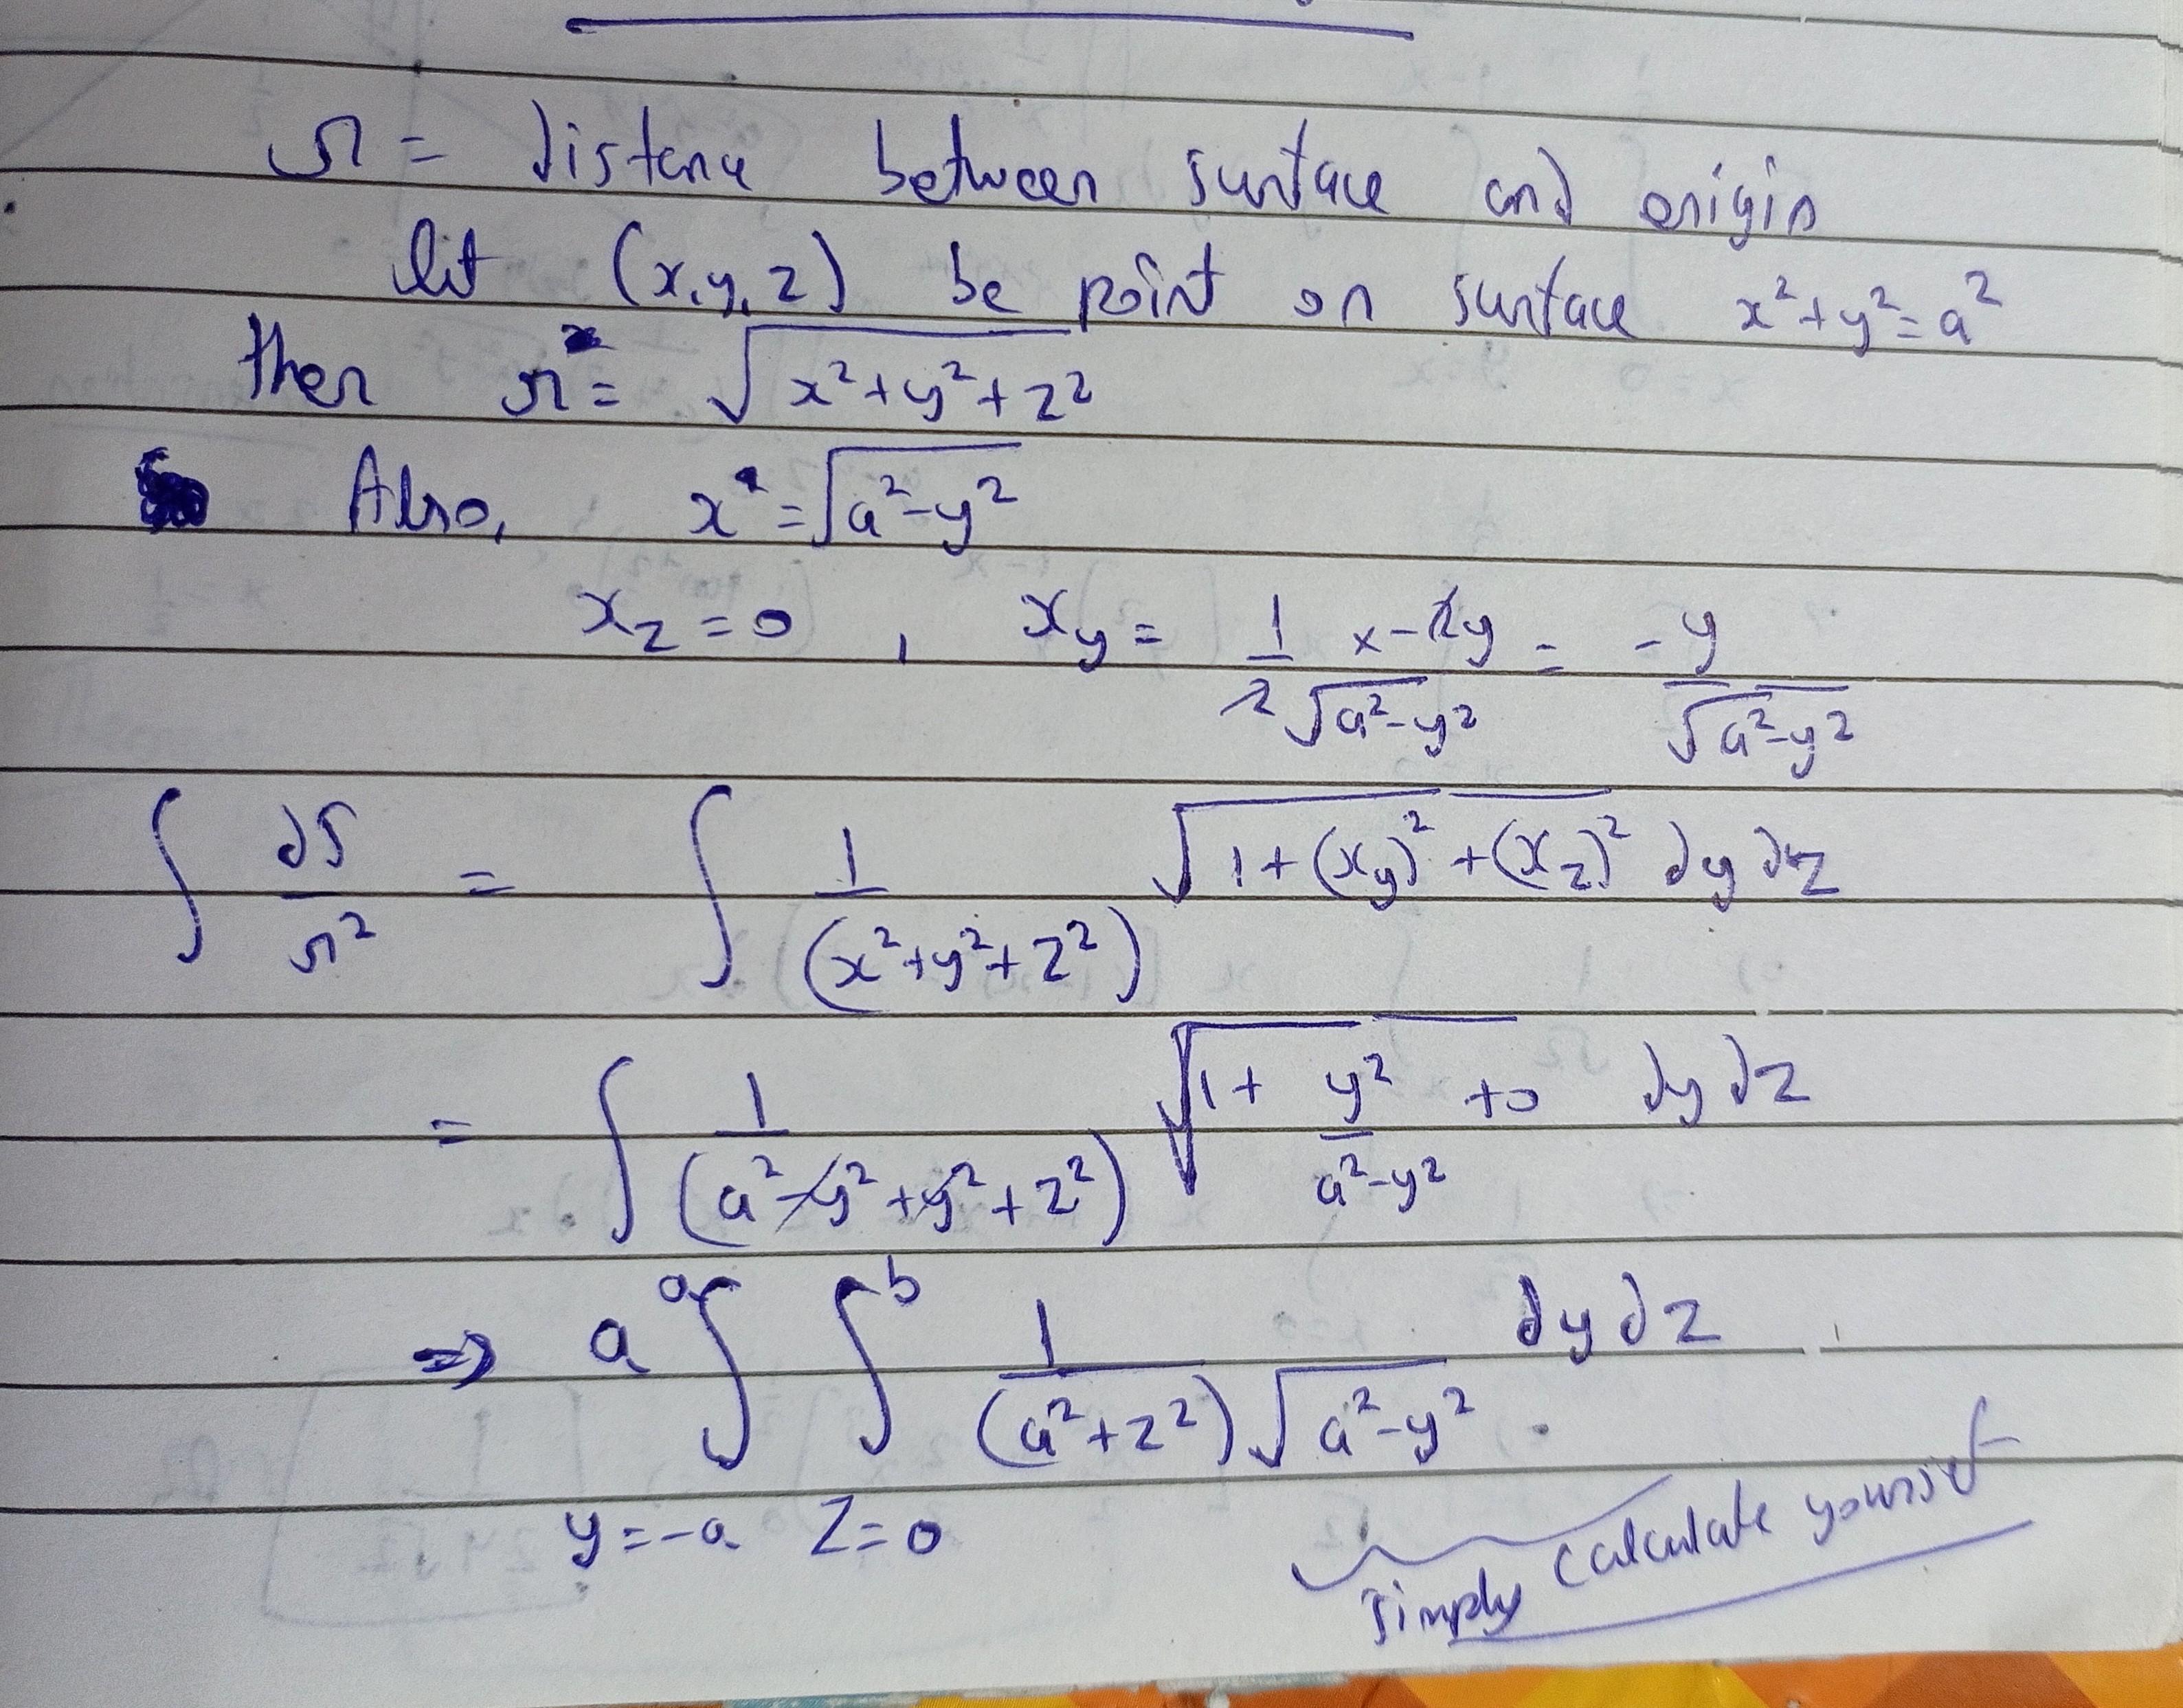 r = distance between surface and origin
let (x, y, z) be point on surface x²+y²=a²
then r = √(x²+y²+z²)
Also, x = √(a²-y²)
x_z = 0 , x_y = 1/(2√(a²-y²)) x -2y = -y/√(a²-y²)
∫ dS/r² = ∫ 1/(x²+y²+z²) √(1+(x_y)²+(x_z)²) dy dz
= ∫ 1/(a²-y²+y²+z²) √(1+ y²/(a²-y²) +0) dy dz
⇒ a ∫_{y=-a}^{a} ∫_{z=0}^{b} 1/((a²+z²)√(a²-y²)) dy dz .
simply calculate yourself